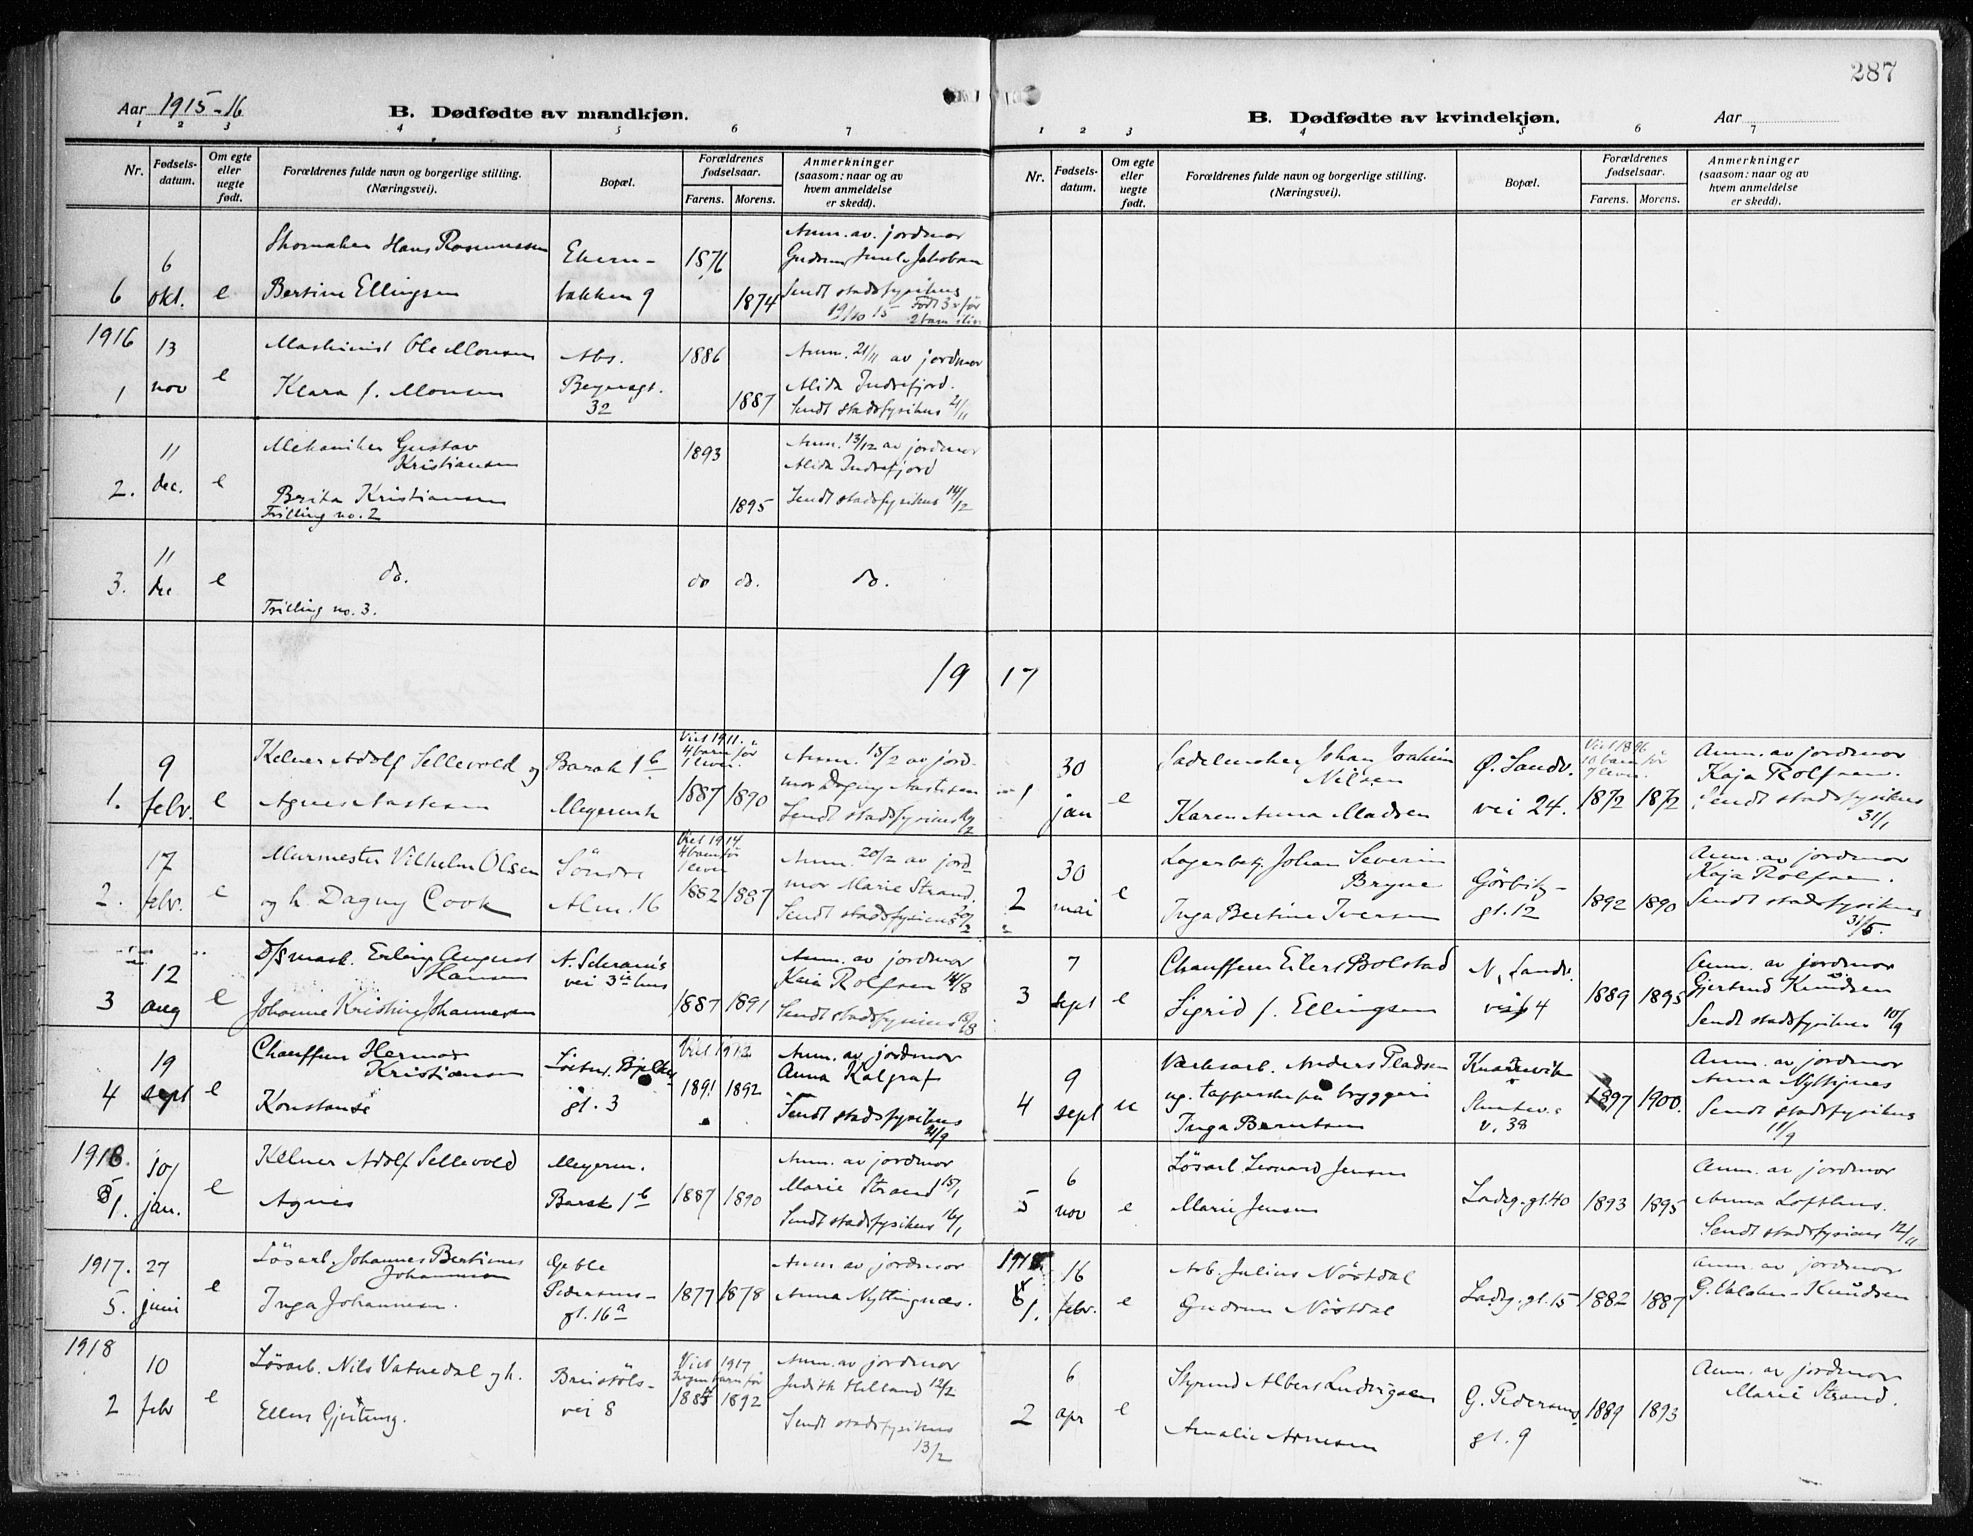 287
Aar 1915-16
B. Dødfødte av mandkjøn.
1 2 3 4 5 6 7
Nr.
Fødsels-datum.
Om egte eller uegte født.
Forældrenes fulde navn og borgerlige stilling. (Næringsvei).
Bopæl.
Forældrenes fødselsaar.
Farens. Morens.
Anmerkninger (saasom: naar og av hvem anmeldelse er skedd).
6
6 okt.
e
Skomaker Hans Rasmussen
Bertine Ellingsen
Ekern-
bakken 9
1876
1874
Anm. av jordmor
Gudrun Jakobsen
Sendt stadsfysikus
19/10 15
1916
1
13 nov
e
Maskinist Ole Monsen
Klara f. Monsen
Abs.
Beyersgt.
32
1886
1887
Anm. 21/11 av jordmor
Alida Indrefjord.
Sendt stadsfysikus 21/11
2.
11 dec.
e
Mekaniker Gustav
Kristiansen
Brita Kristiansen
Trilling no. 2
1893
1895
Anm. 13/12 av jordmor
Alida Indrefjord
Sendt stadsfysikus 14/12
3.
11 dec
e
do.
Trilling no. 3.
do do.
do.
19
1.
9 febr.
e
Kelner Adolf Sellevold og
Agnes
Barak 1 b
Meyermk
Viet 1911.
4 barn før
1 lever.
1887 1890
Anm. 15/2 av jord-
mor Dagny
Sendt stadsfysikus
2.
17 febr.
e
Murmester Vilhelm Olsen
og h. Dagny Cook
Söndre
Alm. 16
Viet 1914
4 barn før
1 lever
1882 1887
Anm. 20/2 av jord-
mor Marie Strand.
Sendt stadsfysikus 20/2
3
12 aug
e
D/S mask. Erling August
Hansen
Johanne Kristine Johannesen
A. Schram's
vei 3 hus
1887 1891
Anm. av jordmor
Kaia Rolfsen 14/8
Sendt stadsfysikus
4
19 sept
e
Chauffeur Herman
Kristiansen
Konstanse
gt. 3
Viet 1912
1891 1892
Anm. av jordmor
Anna Kalgraf
Sendt stadsfysikus
21/9
1918.
1.
10/ jan.
e
Kelner Adolf Sellevold
Agnes
Meyerm.
Barak 1 b
1887 1890
Anm. av jordmor
Marie Strand 15/1
Sendt stadsfysikus 16/1
1917.
5.
27 juni
e
Løsarb. Johannes Bertinus
Johannesen
Inga Johannesen.
Geble
Pedersens-
gt. 16a
1877 1878
Anm av jordmor
Anna Nyttingnes.
1918
2
10 febr
e
Løsarb. Nils Vatnedal og h.
Ellen Gjertung.
Bruntöls-
vei 8
Viet 1917
Ingen barn før
1885 1892
Anm. av jordmor
Judith Helland 12/2
Sendt stadsfysikus
13/2
B. Dødfødte av kvindekjøn.
Aar
1 2 3 4 5 6 7
Nr.
Fødsels-datum.
Om egte eller uegte født.
Forældrenes fulde navn og borgerlige stilling. (Næringsvei).
Bopæl.
Forældrenes fødselsaar.
Farens. Morens.
Anmerkninger (saasom: naar og av hvem anmeldelse er skedd).
17
1
30 jan
e
Sadelmaker Johan Joakim
Nilsen
Karen Anna Madsen
Ø. Sandv.
vei 24.
Viet 1896
10 barn før
7 lever.
1872 1872
Anm. av jordmor
Kaja Rolfsen.
Sendt stadsfysikus
31/1
2
30 mai
e
Lagerbetj. Johan Severin
Bryne
Inga Bertine Iversen
Görbitz-
gt. 12
1892 1890
Anm. av jordmor
Kaja Rolfsen.
Sendt stadsfysikus
31/5.
3
7 sept
e
Chauffeur Eilert Bolstad
Sigrid f. Ellingsen
N. Sandv.
vei 64
1889 1895
Anm. av jordmor
Gjertrud Knudsen
Sendt stadsfysikus 10/9
4
9 sept
u
Verksarb. Anders Pladsen
ug. tapperske på bryggeri
Inga Berntsen
v. 38
1897 1900.
Anm. av jordmor
Anna Nyttignes
Sendt stadsfysikus
11/9
5
6 nov
e
Løsarb Leonard Jensen
Marie Jensen
Ladeg. gt. 40
1893 1895
Anm. av jordmor
Anna Lofthus.
Sendt stadsfysikus 12/11
1918
1.
16 febr.
e
Arb. Julius Nöstdal
Gudrun Nöstdal
Ladeg. gt. 15
1882 1887
Anm. av jordmor
G. Knudsen
2
6 apr
e
Styrmd Albert Ludvigsen
Amalie Arnesen
G. Pedersens
gt. 9
1889 1893
Anm. av jordmor
Marie Strand.